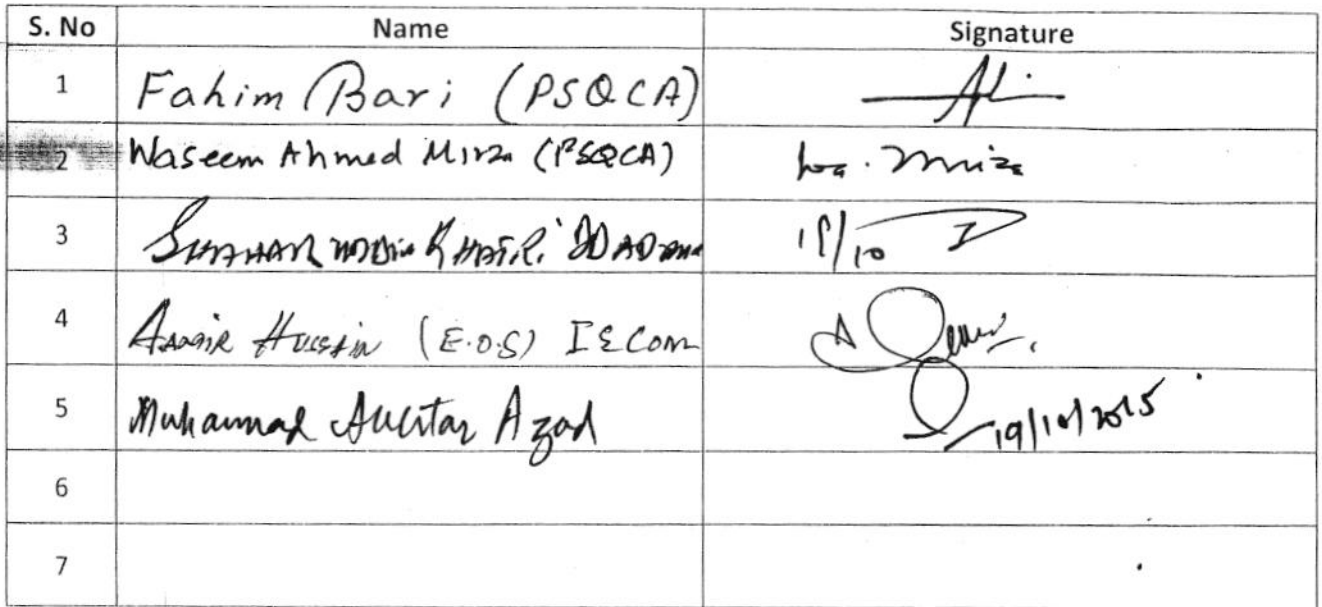 S. No Name Signature
1 Fahim Bari (PSQCA)
2 Waseem Ahmed Mirza (PSQCA) Wa. Mirza
3 19/10
4 Aamir Hussain (E.O.S) IECOM A
5 Muhammad Akhtar Azad 19/10/2015
6
7